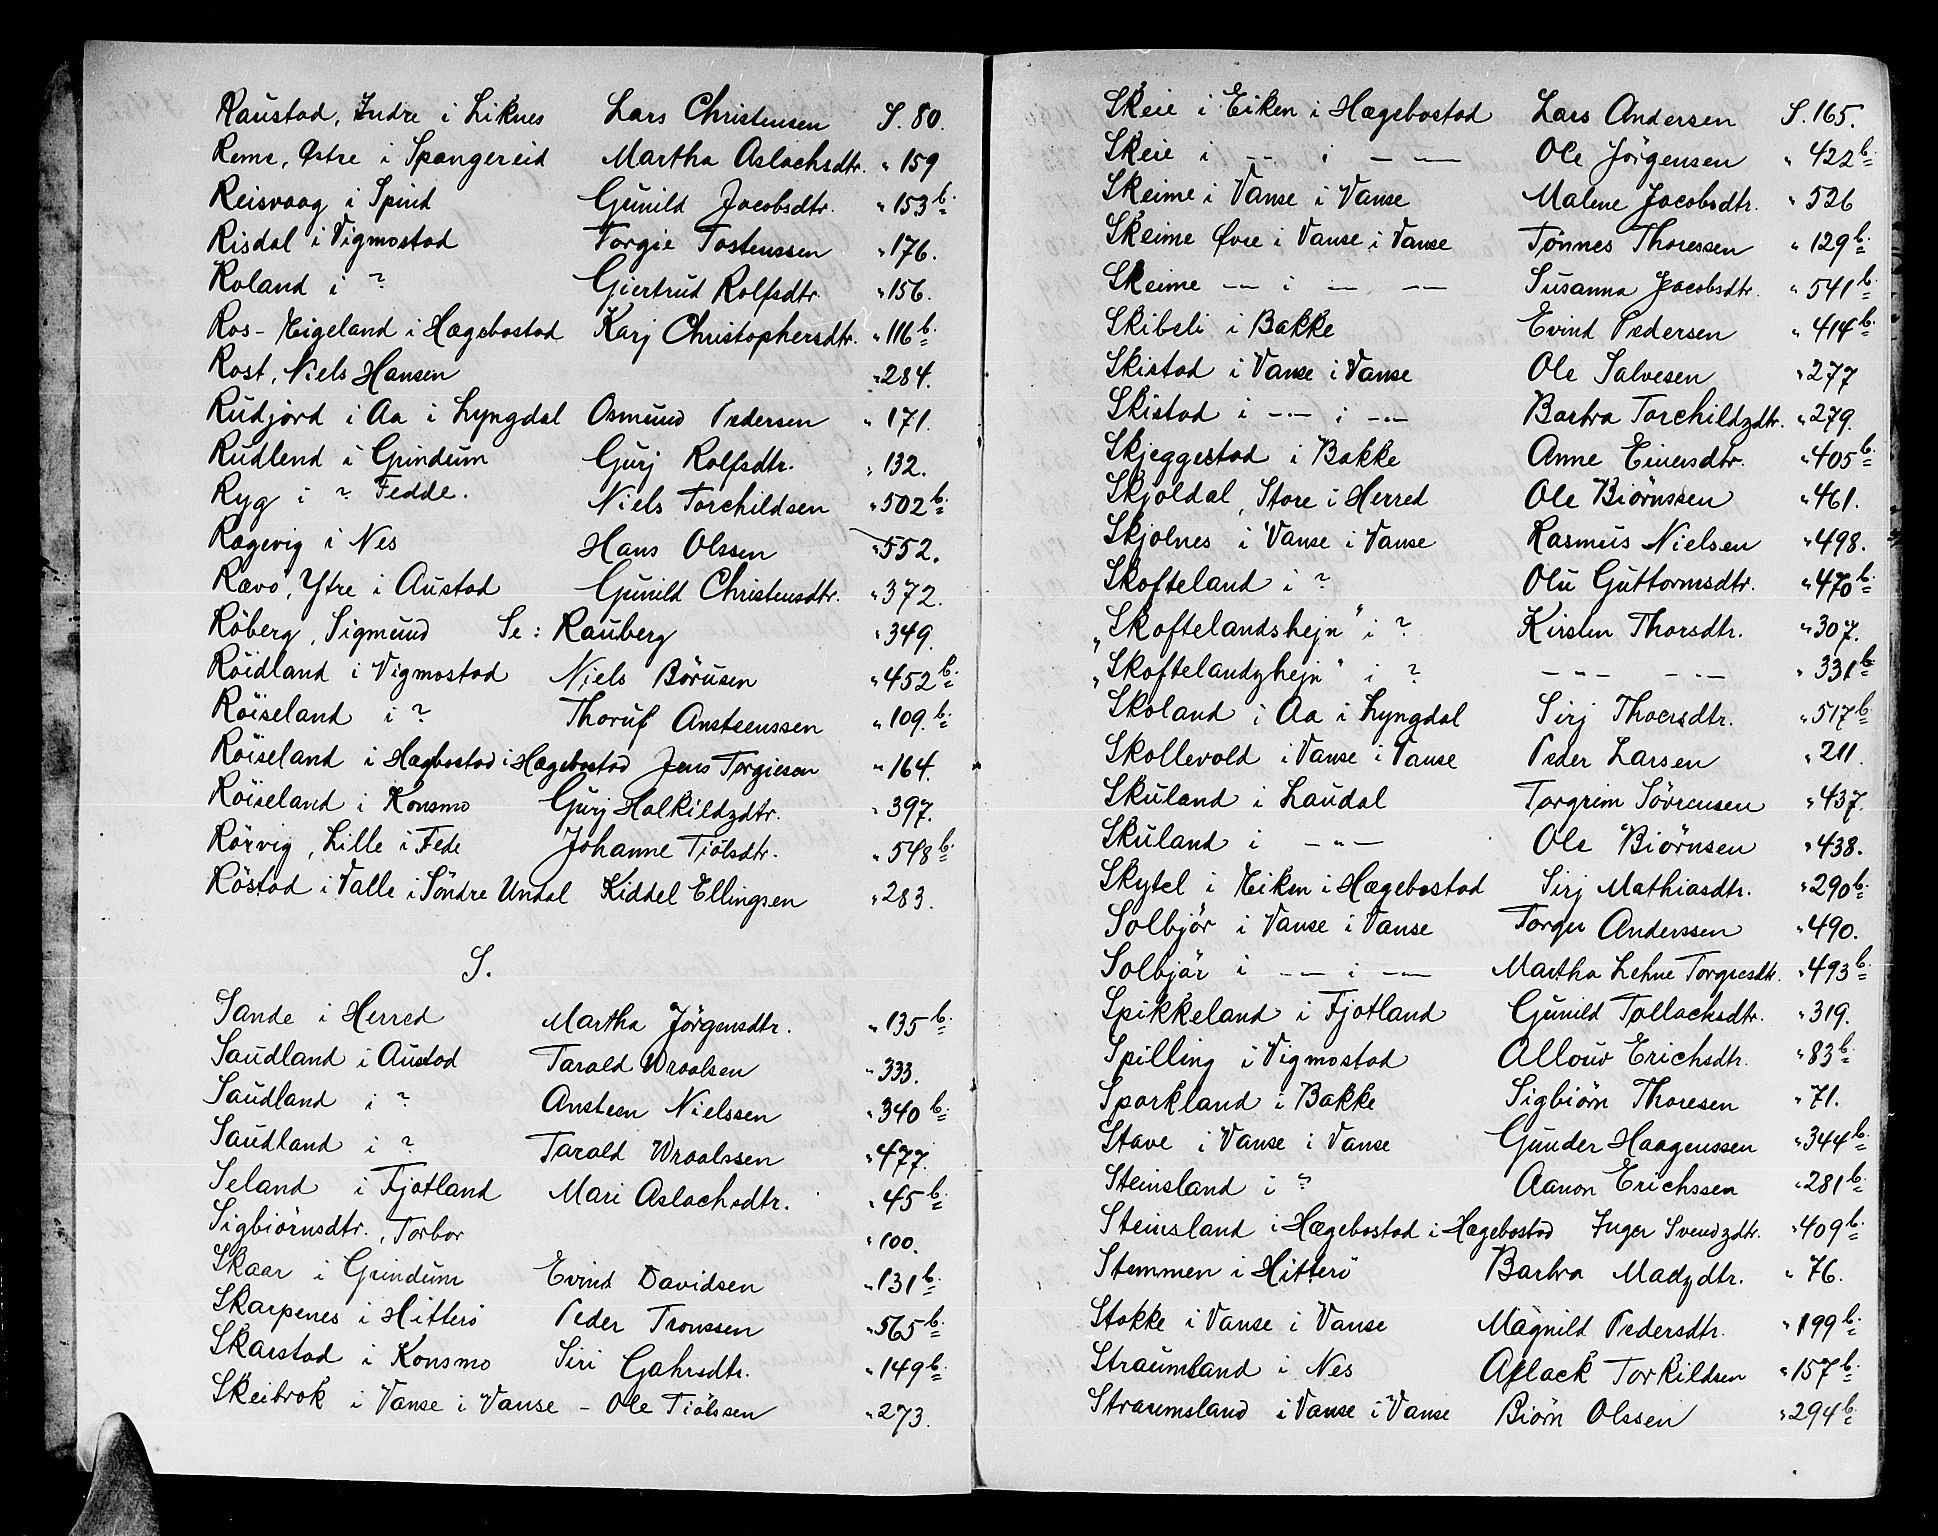 Raustad, Indre i Liknes Lars Christensen S. 80.
Reme, Østre i Spangereid Martha Aslachsdtr. " 159
Reisvaag i Spind Gunild Jacobsdtr. " 153 b.
Risdal i Vigmostad Torgie Tostenssen " 176.
Roland i ? Giertrud Rolfsdtr. " 156.
Ros-Eigeland i Hægebostad Karj Christophersdtr. " 116 b.
Rost, Niels Hansen " 284.
Rudjord i Aa i Lyngdal Osmund Pedersen " 171.
Rudlend i Grindum Gurj Rolfsdtr. " 132.
Ryg i ? Fedde. Niels Torchildsen " 502 b.
Rægevig i Nes Hans Olssen " 552.
Rævo, Ytre i Austad Gunild Christensdtr. " 372.
Röberg, Sigmund Se: Rauberg " 349.
Röidland i Vigmostad Niels Börusen " 452 b.
Röiseland i ? Thoruf Ansteenssen " 109. b.
Röiseland i Hægbostad i Hægebostad Jens Torgiesen " 164.
Röiseland i Konsmo Gurj Halkildzdtr. " 397.
Rörvig, Lille i Fede Johanne Tiölsdtr. " 548 b.
Röstad i Valle i Söndre Undal Kiddel Ellingsen " 283.
S.
Sande i Herred Martha Jörgensdtr. " 135 b.
Saudland i Austad Tarald Wraalsen " 333.
Saudland i ? Ansteen Nielssen " 340 b.
Saudland i ? Tarald Wraalssen " 477.
Seland i Fjotland Mari Aslachsdtr. " 45 b.
Sigbiörnsdtr., Torbor " 100.
Skaar i Grindum Evind Davidsen " 131 b.
Skarpenes i Hitterö Peder Tronssen " 565 b.
Skarstad i Konsmo Siri Gahrsdtr. " 149 b.
Skeibrok i Vanse i Vanse - Ole Tiölssen " 273.
Skeie i Eiken i Hægebostad Lars Andersen S. 165.
Skeie i -"- i - "- Ole Jörgensen " 422 b.
Skeime i Vanse i Vanse Malene Jacobsdtr. " 526
Skeime Øvre i Vanse i Vanse Tönnes Thoressen " 129 b.
Skeime -"- i -"- -"- Susanna Jacobsdtr. " 541 b.
Skibeli i Bakke Evind Pedersen " 414 b.
Skistad i Vanse i Vanse Ole Salvesen " 277
Skistad i -"- i -"- Barbra Torchildzdtr. " 279.
Skjeggestad i Bakke Anne Einersdtr. " 405 b.
Skjoldal, Store i Herred Ole Biörnssen " 461.
Skjolnes i Vanse i Vanse Rasmus Nielsen " 498.
Skofteland i ? Olu Guttormsdtr. " 470 b.
"Skoftelandshejn" i ? Kirsten Thorsdtr. " 307.
"Skoftelandzhejn" i ? -"- -"- " 331 b.
Skoland i Aa i Lyngdal Sirj Thoersdtr. " 517 b.
Skollevold i Vanse i Vanse Peder Larsen " 211.
Skuland i Laudal Torgrim Sörensen " 437.
Skuland i -"- Ole Biörnsen " 438.
Skytel i Eiken i Hægebostad Sirj Mathiasdtr. " 290 b.
Solbjör i Vanse i Vanse Torger Anderssen " 490.
Solbjör i -"- i -"- Martha Lehne Torgersdtr. " 493 b.
Spikkeland i Fjotland Gunild Tollachsdtr. " 319.
Spilling i Vigmostad Allouv Erichsdtr. " 83 b.
Sporkland i Bakke Sigbiörn Thoresen " 71.
Stave i Vanse i Vanse Gunder Haagenssen " 344 b.
Steinsland i ? Aanon Erichssen " 281 b.
Steinsland i Hægebostad i Hægebostad Inger Svendzdtr. " 409 b.
Stemmen i Hitterö Barbra Madzdtr. " 76.
Stokke i Vanse i Vanse Magnild Pedersdtr. " 199 b.
Straumland i Nes Aslack Torkildsen " 157 b.
Straumsland i Vanse i Vanse Biörn Olssen " 294 b.